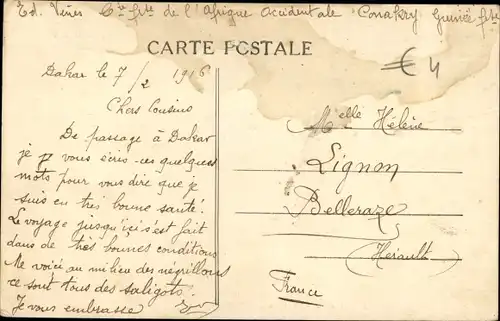 Ed. Vines Cie fse de l'Afrique Occidentale Conakry Guinée fse
CARTE POSTALE
€ 4
Dakar le 7/2 1916
Chers Cousins
De passage à Dakar
je vous écris ces quelques
mots pour vous dire que je
suis en très bonne santé.
Le voyage jusqu'ici s'est fait
dans de très bonnes conditions
Me voici au milieu des negrillons
ce sont tous des saligots.
Je vous embrasse
Melle Hélène
Lignon
Belleraze
(Hérault)
France